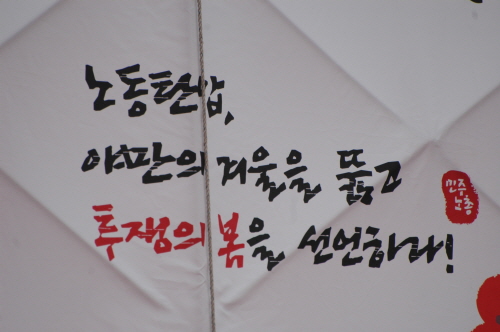 노동탄압,
야만의 겨울을 뚫고
투쟁의 봄을 선언하라!
민주
노총